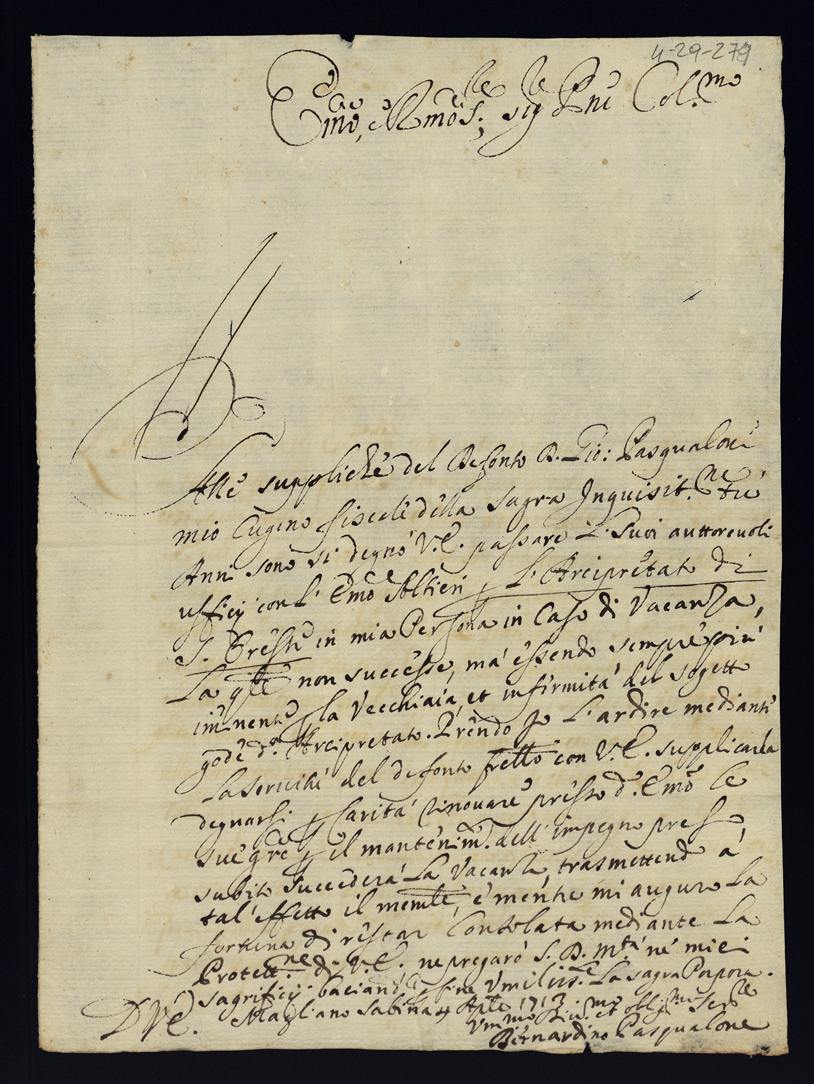 4-29-279
Emo, e Rmo Sig.re Sig.re Prne Col.mo
Alle suppliche del Defonto D. Gio: Pasqualoni
mio Cugino fiscale della Sagra Inquisit.ne trè
Anni sono si degnò V.E. passare l'suoi auttorevoli
ufficij con l'Emo Altieri p L'Arcipretato di
S. in mia Persona in Caso di Vacanza,
La qle non successe, mà essendo sempre più
iminente p la Vecchiaia, et infirmità del sogetto
gode d.o Arcipretato. Prendo Io l'ardire mediante
La servitù del defonto con V.E. supplicarla
degnarsi p Carità rinovare presso d.o Emo le
sue gre p il mantenim.to dell'impegno preso,
subito succederà La Vacanza, trasmettendo à
tal'effetto il memle, e mentre mi auguro La
fortuna di restar Consolata mediante La
Protett.ne di V.E., ne pregarò S. D. M.tà ne miei
Sagrifici, baciando fine Umiliss.te La sagra Porpora.
D V. E. Magliano Sabina 4 Aple 1713
Um.mo Div. et obblig.mo Ser.re
Bernardino Pasqualone